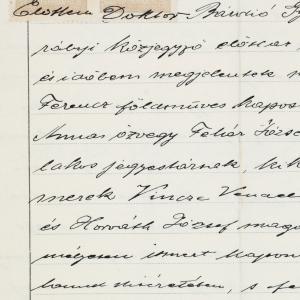 Előttem Doktor Bárdió
rályi közjegyző előtt a
és időben megjelentek
Ferencz földműves Kapos
Annus özvegy Fehér Józse
lakos jegyestársnek, kik
merek Vincze Vencel
és Horváth József mag
mélyesen ismert kapos